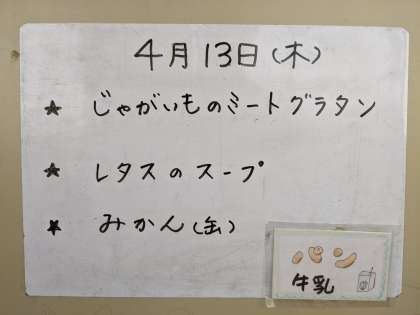 4月13日(木)
★ じゃがいものミートグラタン
★ レタスのスープ
★ みかん(缶)
パン
牛乳